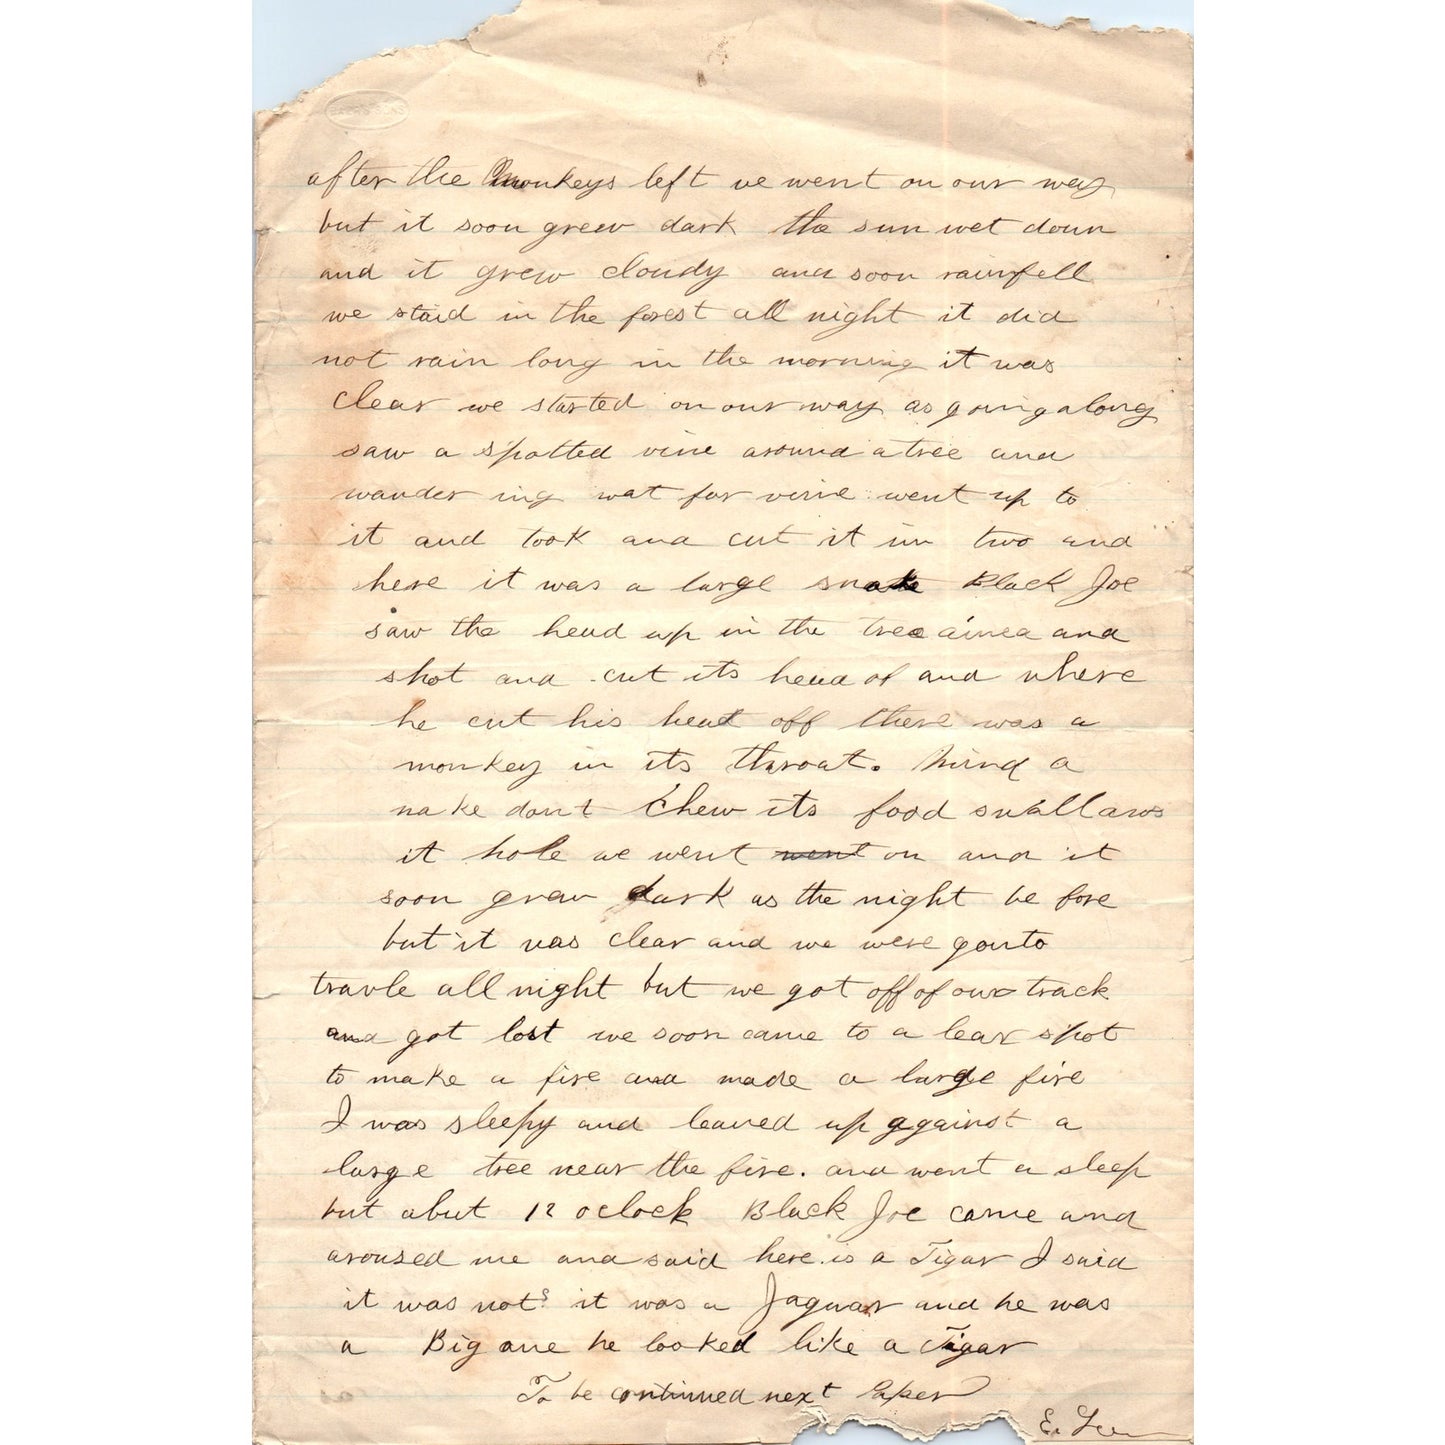 after the monkeys left we went on our way
but it soon grew dark the sun wet down
and it grew cloudy and soon rain fell
we staid in the forest all night it did
not rain long in the morning it was
clear we started on our way as going along
saw a spotted vine around a tree and
wander ing wat for vine went up to
it and took and cut it in two and
here it was a large snake Black Joe
saw the head up in the tree aimed and
shot and cut its head of and where
he cut his head off there was a
monkey in its throat. Mind a
nake dont chew its food swallaws
it hole we went went on and it
soon grew dark as the night be fore
but it was clear and we were gonto
travle all night but we got off of our track
and got lost we soon came to a lear spot
to make a fire and made a large fire
I was sleepy and leaned up against a
large tree near the fire. and went a sleep
but abut 12 oclock Black Joe came and
aroused me and said here is a Tigar I said
it was not it was a Jaguar and he was
a Big one he looked like a Tigar
To be continued next Paper
E.